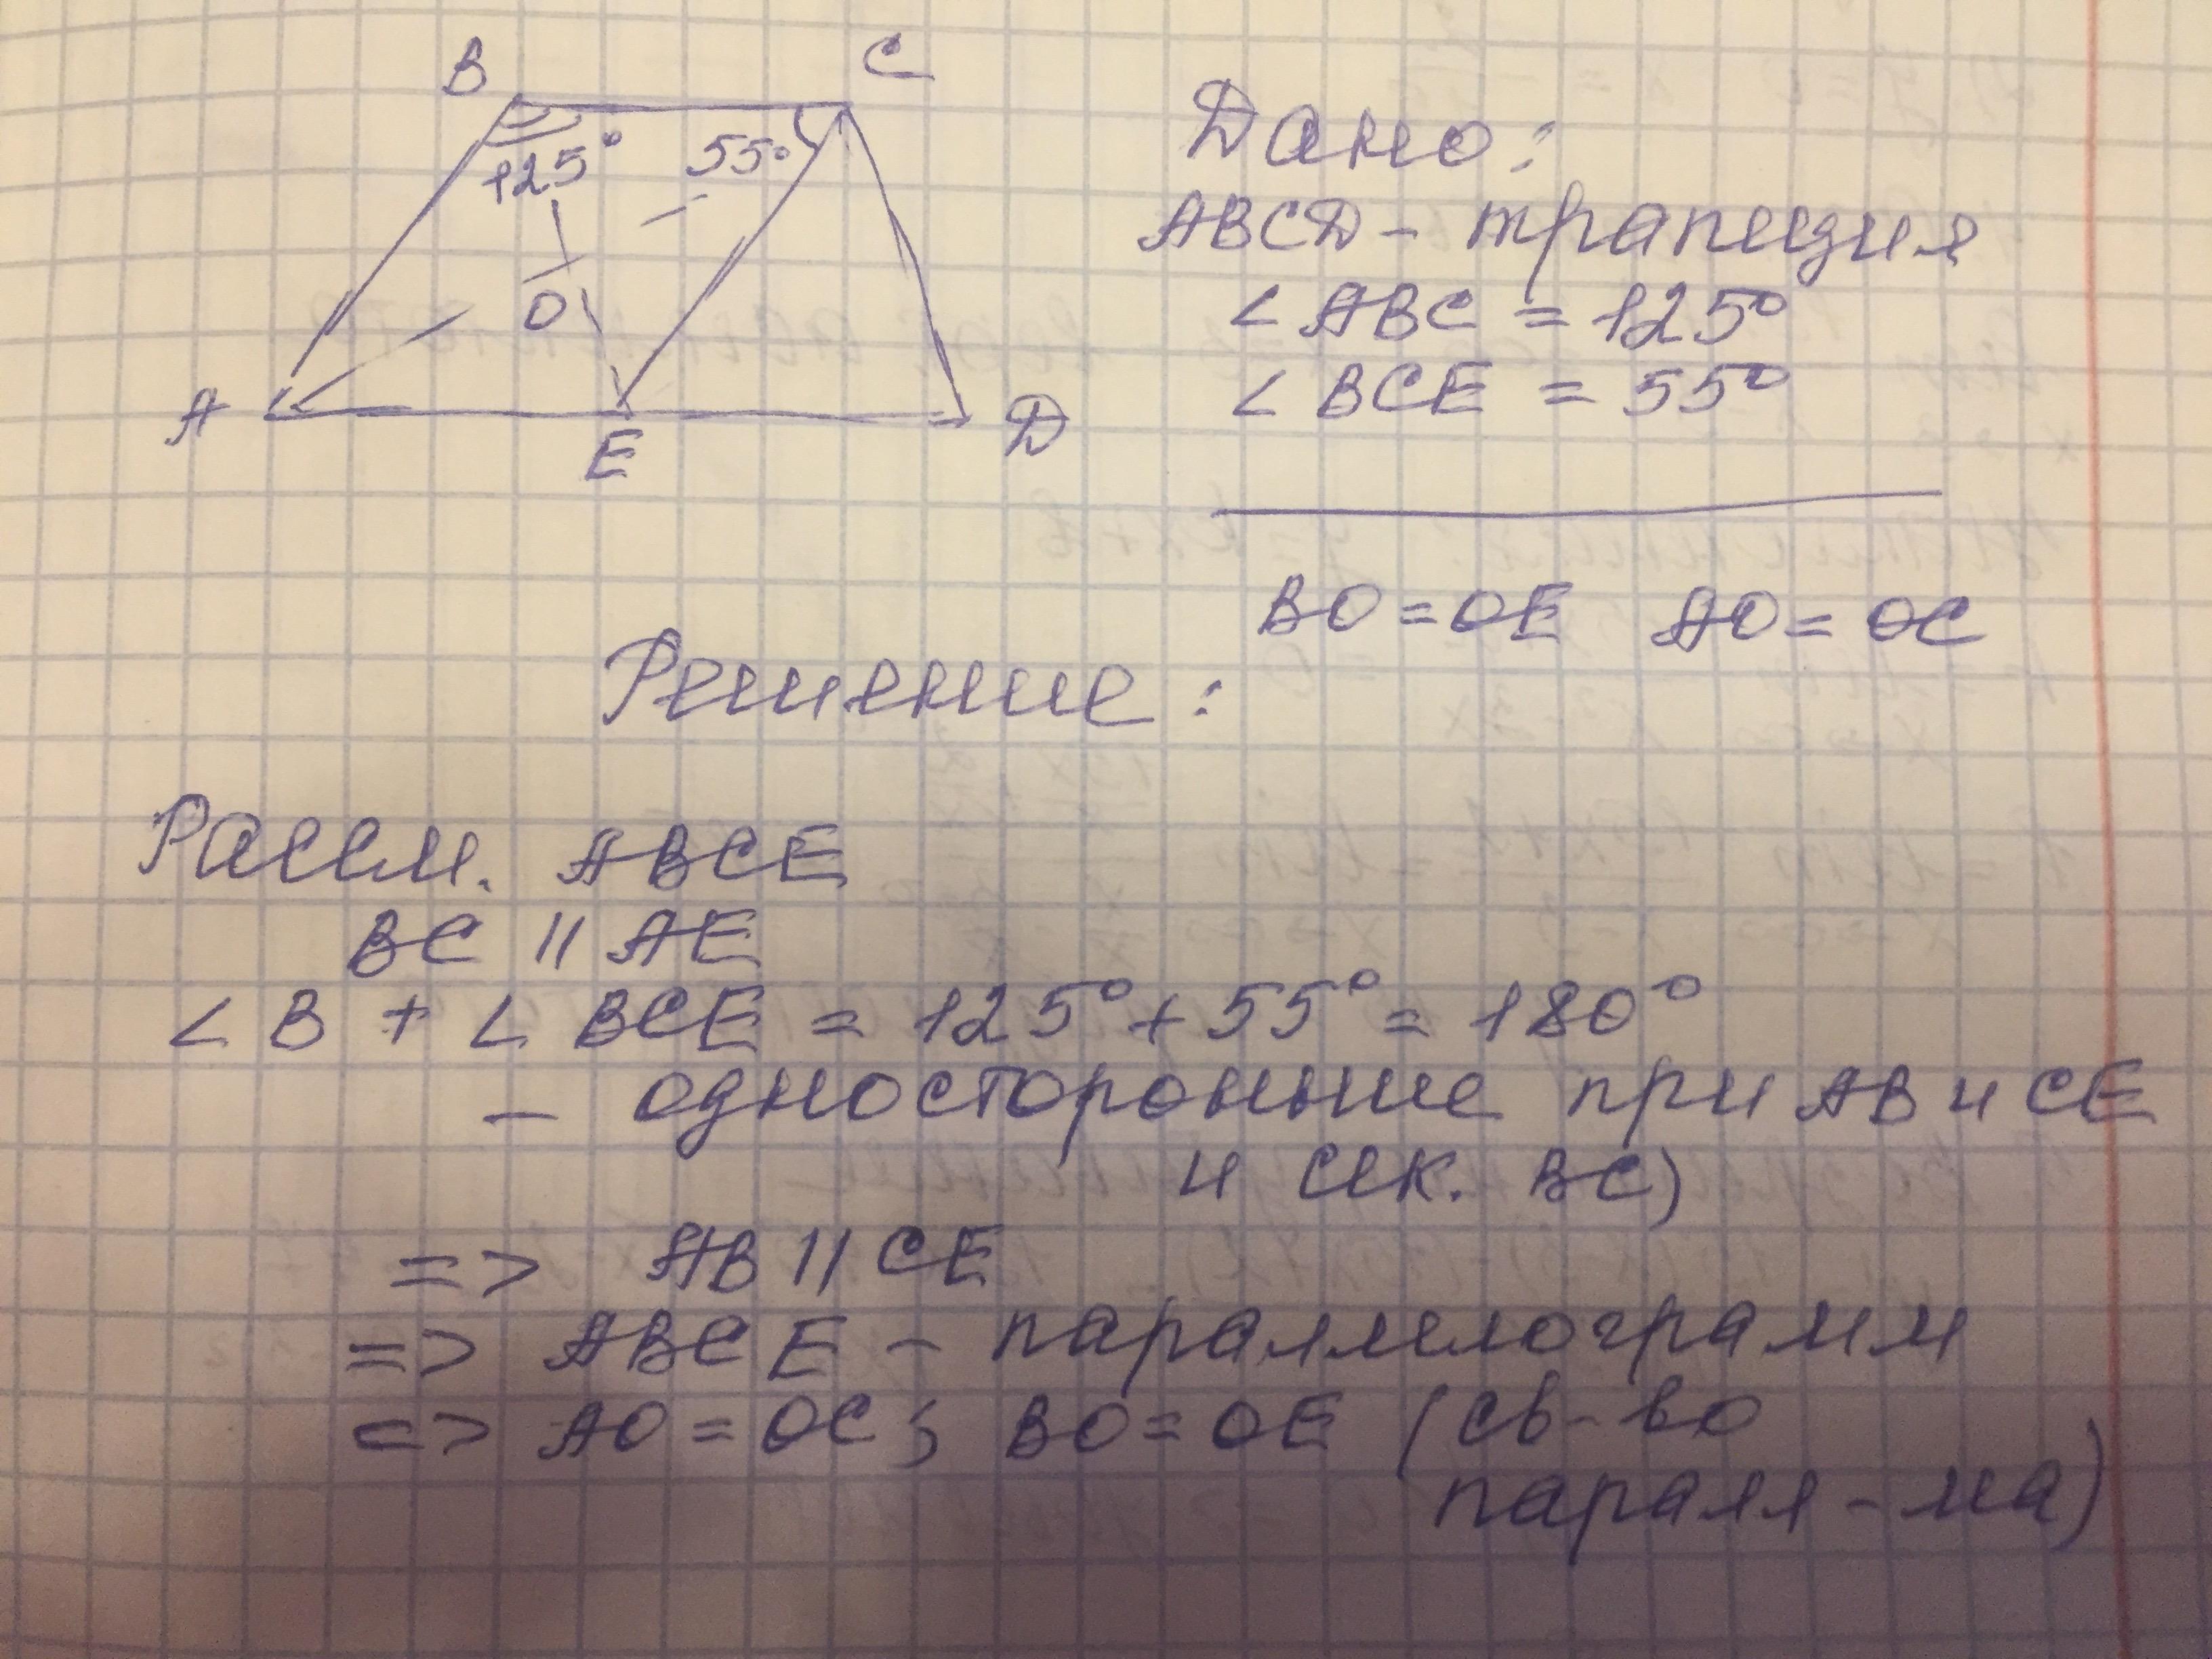 B C
125° 55°
O
A E D
Дано:
ABCD - трапеция
∠ ABC = 125°
∠ BCE = 55°
BO = OE AO = OC
Решение:
Рассм. ABCE
BC || AE
∠ B + ∠ BCE = 125° + 55° = 180°
- односторонние при AB и CE
и сек. BC)
=> AB || CE
=> ABCE - параллелограмм
=> AO = OC; BO = OE (св-во
паралл-ма)